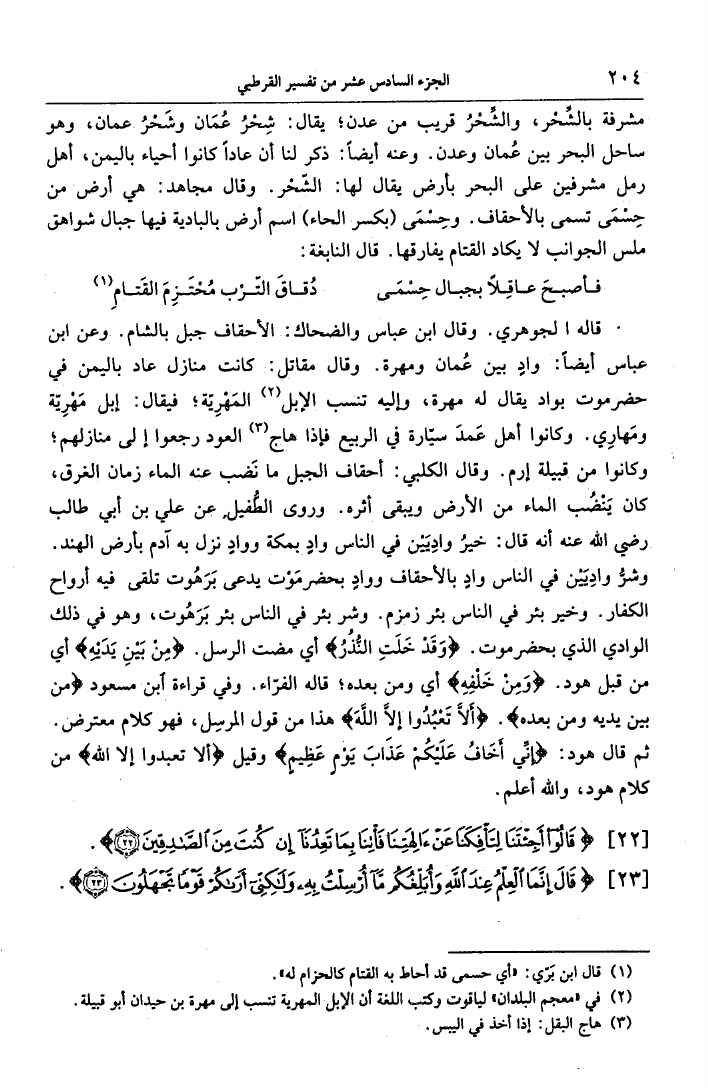 ٢٠٤ الجزء السادس عشر من تفسير القرطبي
مشرفة بالشِّحْر، والشِّحْرُ قريب من عدن؛ يقال: شِحْرُ عُمَان وشَحْرُ عمان، وهو
ساحل البحر بين عُمان وعدن. وعنه أيضاً: ذكر لنا أن عاداً كانوا أحياء باليمن، أهل
رمل مشرفين على البحر بأرض يقال لها: الشِّحْر. وقال مجاهد: هي أرض من
حِسْمَى تسمى بالأحقاف. وحِسْمَى (بكسر الحاء) اسم أرض بالبادية فيها جبال شواهق
ملس الجوانب لا يكاد القتام يفارقها. قال النابغة:
فـأصبـحَ عـاقِـلاً بجبـال حِسْمَـى دُقـاقَ التّـرْب مُخْتَـزِمَ القَتـامِ(١)
قاله ا لجوهري. وقال ابن عباس والضحاك: الأحقاف جبل بالشام. وعن ابن
عباس أيضاً: وادٍ بين عُمان ومهرة. وقال مقاتل: كانت منازل عاد باليمن في
حضرموت بواد يقال له مهرة، وإليه تنسب الإبل(٢) المَهْرِيّة؛ فيقال: إبل مَهْرِيّة
ومَهارِي. وكانوا أهل عَمدَ سيّارة في الربيع فإذا هاج(٣) العود رجعوا إ لى منازلهم؛
وكانوا من قبيلة إرم. وقال الكلبي: أحقاف الجبل ما نَضب عنه الماء زمان الغرق،
كان يَنْضُب الماء من الأرض ويبقى أثره. وروى الطُّفيل عن علي بن أبي طالب
رضي الله عنه أنه قال: خيرُ وادِيَيْن في الناس وادٍ بمكة ووادٍ نزل به آدم بأرض الهند.
وشرُّ وادِيَيْن في الناس وادٍ بالأحقاف ووادٍ بحضرمَوْت يدعى بَرَهُوت تلقى فيه أرواح
الكفار. وخير بئر في الناس بئر زمزم. وشر بئر في الناس بئر بَرَهُوت، وهو في ذلك
الوادي الذي بحضرموت. ﴿وَقَدْ خَلَتِ النُّذُرُ﴾ أي مضت الرسل. ﴿مِنْ بَيْنِ يَدَيْهِ﴾ أي
من قبل هود. ﴿وَمِنْ خَلْفِهِ﴾ أي ومن بعده؛ قاله الفرّاء. وفي قراءة ٱبن مسعود ﴿من
بين يديه ومن بعده﴾. ﴿أَلاَّ تَعْبُدُوا إلاَّ اللَّهَ﴾ هذا من قول المرسِل، فهو كلام معترض.
ثم قال هود: ﴿إِنِّي أَخَافُ عَلَيْكُمْ عَذَابَ يَوْمٍ عَظِيمٍ﴾ وقيل ﴿ألا تعبدوا إلا الله﴾ من
كلام هود، والله أعلم.
[٢٢] ﴿ قَالُوٓا۟ أَجِئْتَنَا لِتَأْفِكَنَا عَنْ ءَالِهَتِنَا فَأْتِنَا بِمَا تَعِدُنَآ إِن كُنتَ مِنَ ٱلصَّـٰدِقِينَ ٢٢﴾.
[٢٣] ﴿ قَالَ إِنَّمَا ٱلْعِلْمُ عِندَ ٱللَّهِ وَأُبَلِّغُكُم مَّآ أُرْسِلْتُ بِهِۦ وَلَـٰكِنِّىٓ أَرَىٰكُمْ قَوْمًا تَجْهَلُونَ ٢٣﴾.
(١) قال ابن بَرّي: «أي حسمى قد أحاط به القتام كالحزام له».
(٢) في «معجم البلدان» لياقوت وكتب اللغة أن الإبل المهرية تنسب إلى مهرة بن حيدان أبو قبيلة.
(٣) هاج البقل: إذا أخذ في اليبس.